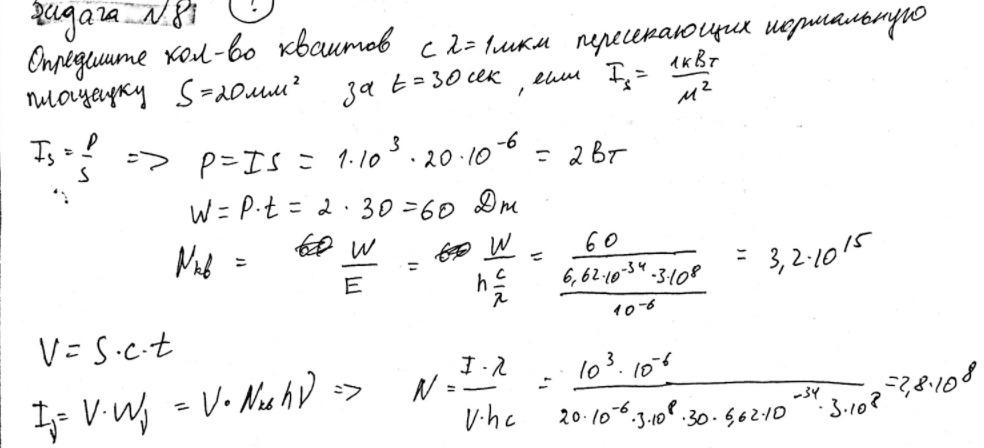 Задача №8 (?)
Определите кол-во квантов с λ=1мкм пересекающих нормальную
площадку S=20мм² за t=30сек, если I_s = 1кВт/м²
I_s = P/S => P=IS = 1·10³·20·10⁻⁶ = 2Вт
W=P·t = 2·30=60 Дж
N_кв = W/E = W/(h c/λ) = 60/((6,62·10⁻³⁴·3·10⁸)/10⁻⁶) = 3,2·10¹⁵
V=S·c·t
I_ν = V·W_ν = V·N_кв hν => N = I·λ/(V·hc) = 10³·10⁻⁶/(20·10⁻⁶·3·10⁸·30·6,62·10⁻³⁴·3·10⁸) = 2,8·10⁸